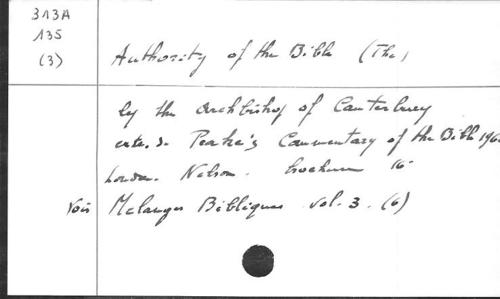 313A
135
(3)
Authority of the Bible (The)
by the Archbishop of Canterbury
Peake's Commentary of the Bible 196
London. Nelson. brochure 16
Voir Melanges Bibliques vol. 3. (6)